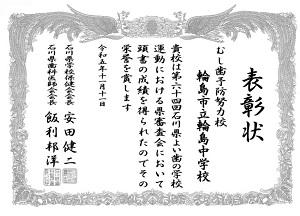 表彰状
むし歯予防努力校
輪島市立輪島中学校
貴校は第六十四回石川県よい歯の学校
運動における県審査会において
頭書の成績を得られたのでその
栄誉を賞します
令和五年十一月十一日
石川県学校保健会会長 安田健二
石川県歯科医師会会長 飯利邦洋